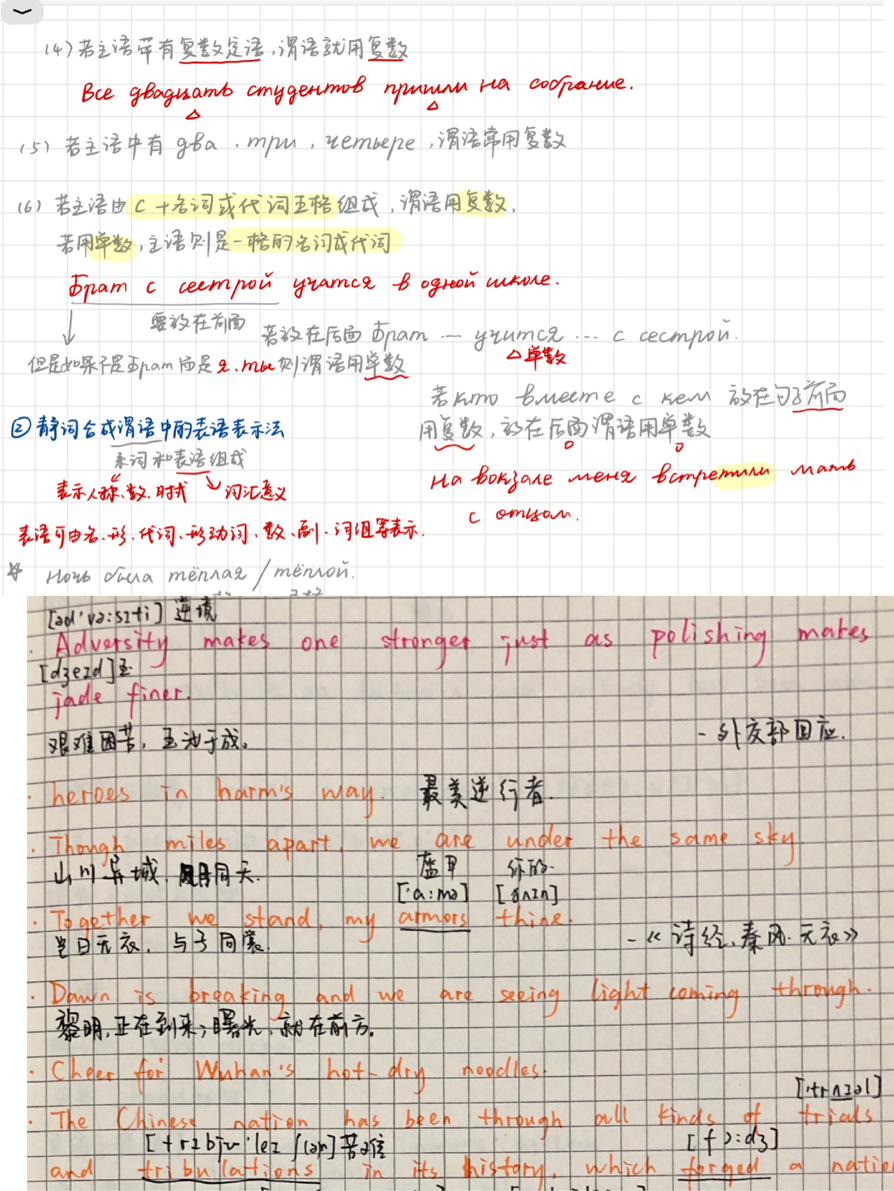 (4) 若主语带有复数定语,谓语就用复数
Все двадцать студентов пришли на собрание.
(5) 若主语中有 два, три, четыре, 谓语常用复数
(6) 若主语由 с + 名词或代词五格组成, 谓语用复数,
若用单数,主语则是一格的名词或代词
Брат с сестрой учатся в одной школе.
要放在前面
若放在后面 Брат … учится … с сестрой.
△单数
但是如果不是 Брат 而是 я. ты 则谓语用单数
若 кто вместе с кем 放在句子前面
用复数, 放在后面谓语用单数
② 静词合成谓语中的表语表示法
系词和表语组成
表示人称、数、时或 词汇意义
На вокзале меня встретили мать
с отцом.
表语可由名、形、代词、形动词、数、副、词组等表示.
Ночь была тёплая / тёплой.
[əd'vɜ:sɪti] 逆境
· Adversity makes one stronger just as polishing makes
[dʒeɪd] 玉
jade finer.
艰难困苦, 玉汝于成。
- 外交部回应.
· heroes in harm's way. 最美逆行者.
· Though miles apart, we are under the same sky
山川异域, 同天.
盔甲 你的.
['ɑ:mə] [ðaɪn]
· Together we stand, my armors thine.
岂曰无衣, 与子同裳.
-《诗经、秦风·无衣》
· Dawn is breaking and we are seeing light coming through.
黎明,正在到来; 曙光, 就在前方。
· Cheer for Wuhan's hot-dry noodles.
['traɪəl]
· The Chinese nation has been through all kinds of trials
[trɪbju'leɪʃ(ə)n] 苦难
[fɔ:dʒ]
and tribulations in its history, which forged a nation